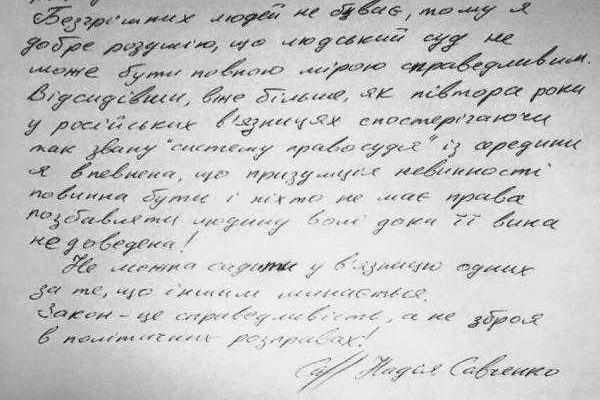 Безгрішних людей не буває, тому я
добре розумію, що людський суд не
може бути повною мірою справедливим.
Відсидівши, вже більше, як півтора роки
у російських в'язницях спостерігаючи
так звану "систему правосуддя" із середини
я впевнена, що призумпція невинності
повинна бути і ніхто не має права
позбавляти людину волі доки її вина
не доведена!
Не можна садити у в'язницю одних
за те, що іншим минається.
Закон - це справедливість, а не зброя
в політичних розправах!
Надія Савченко